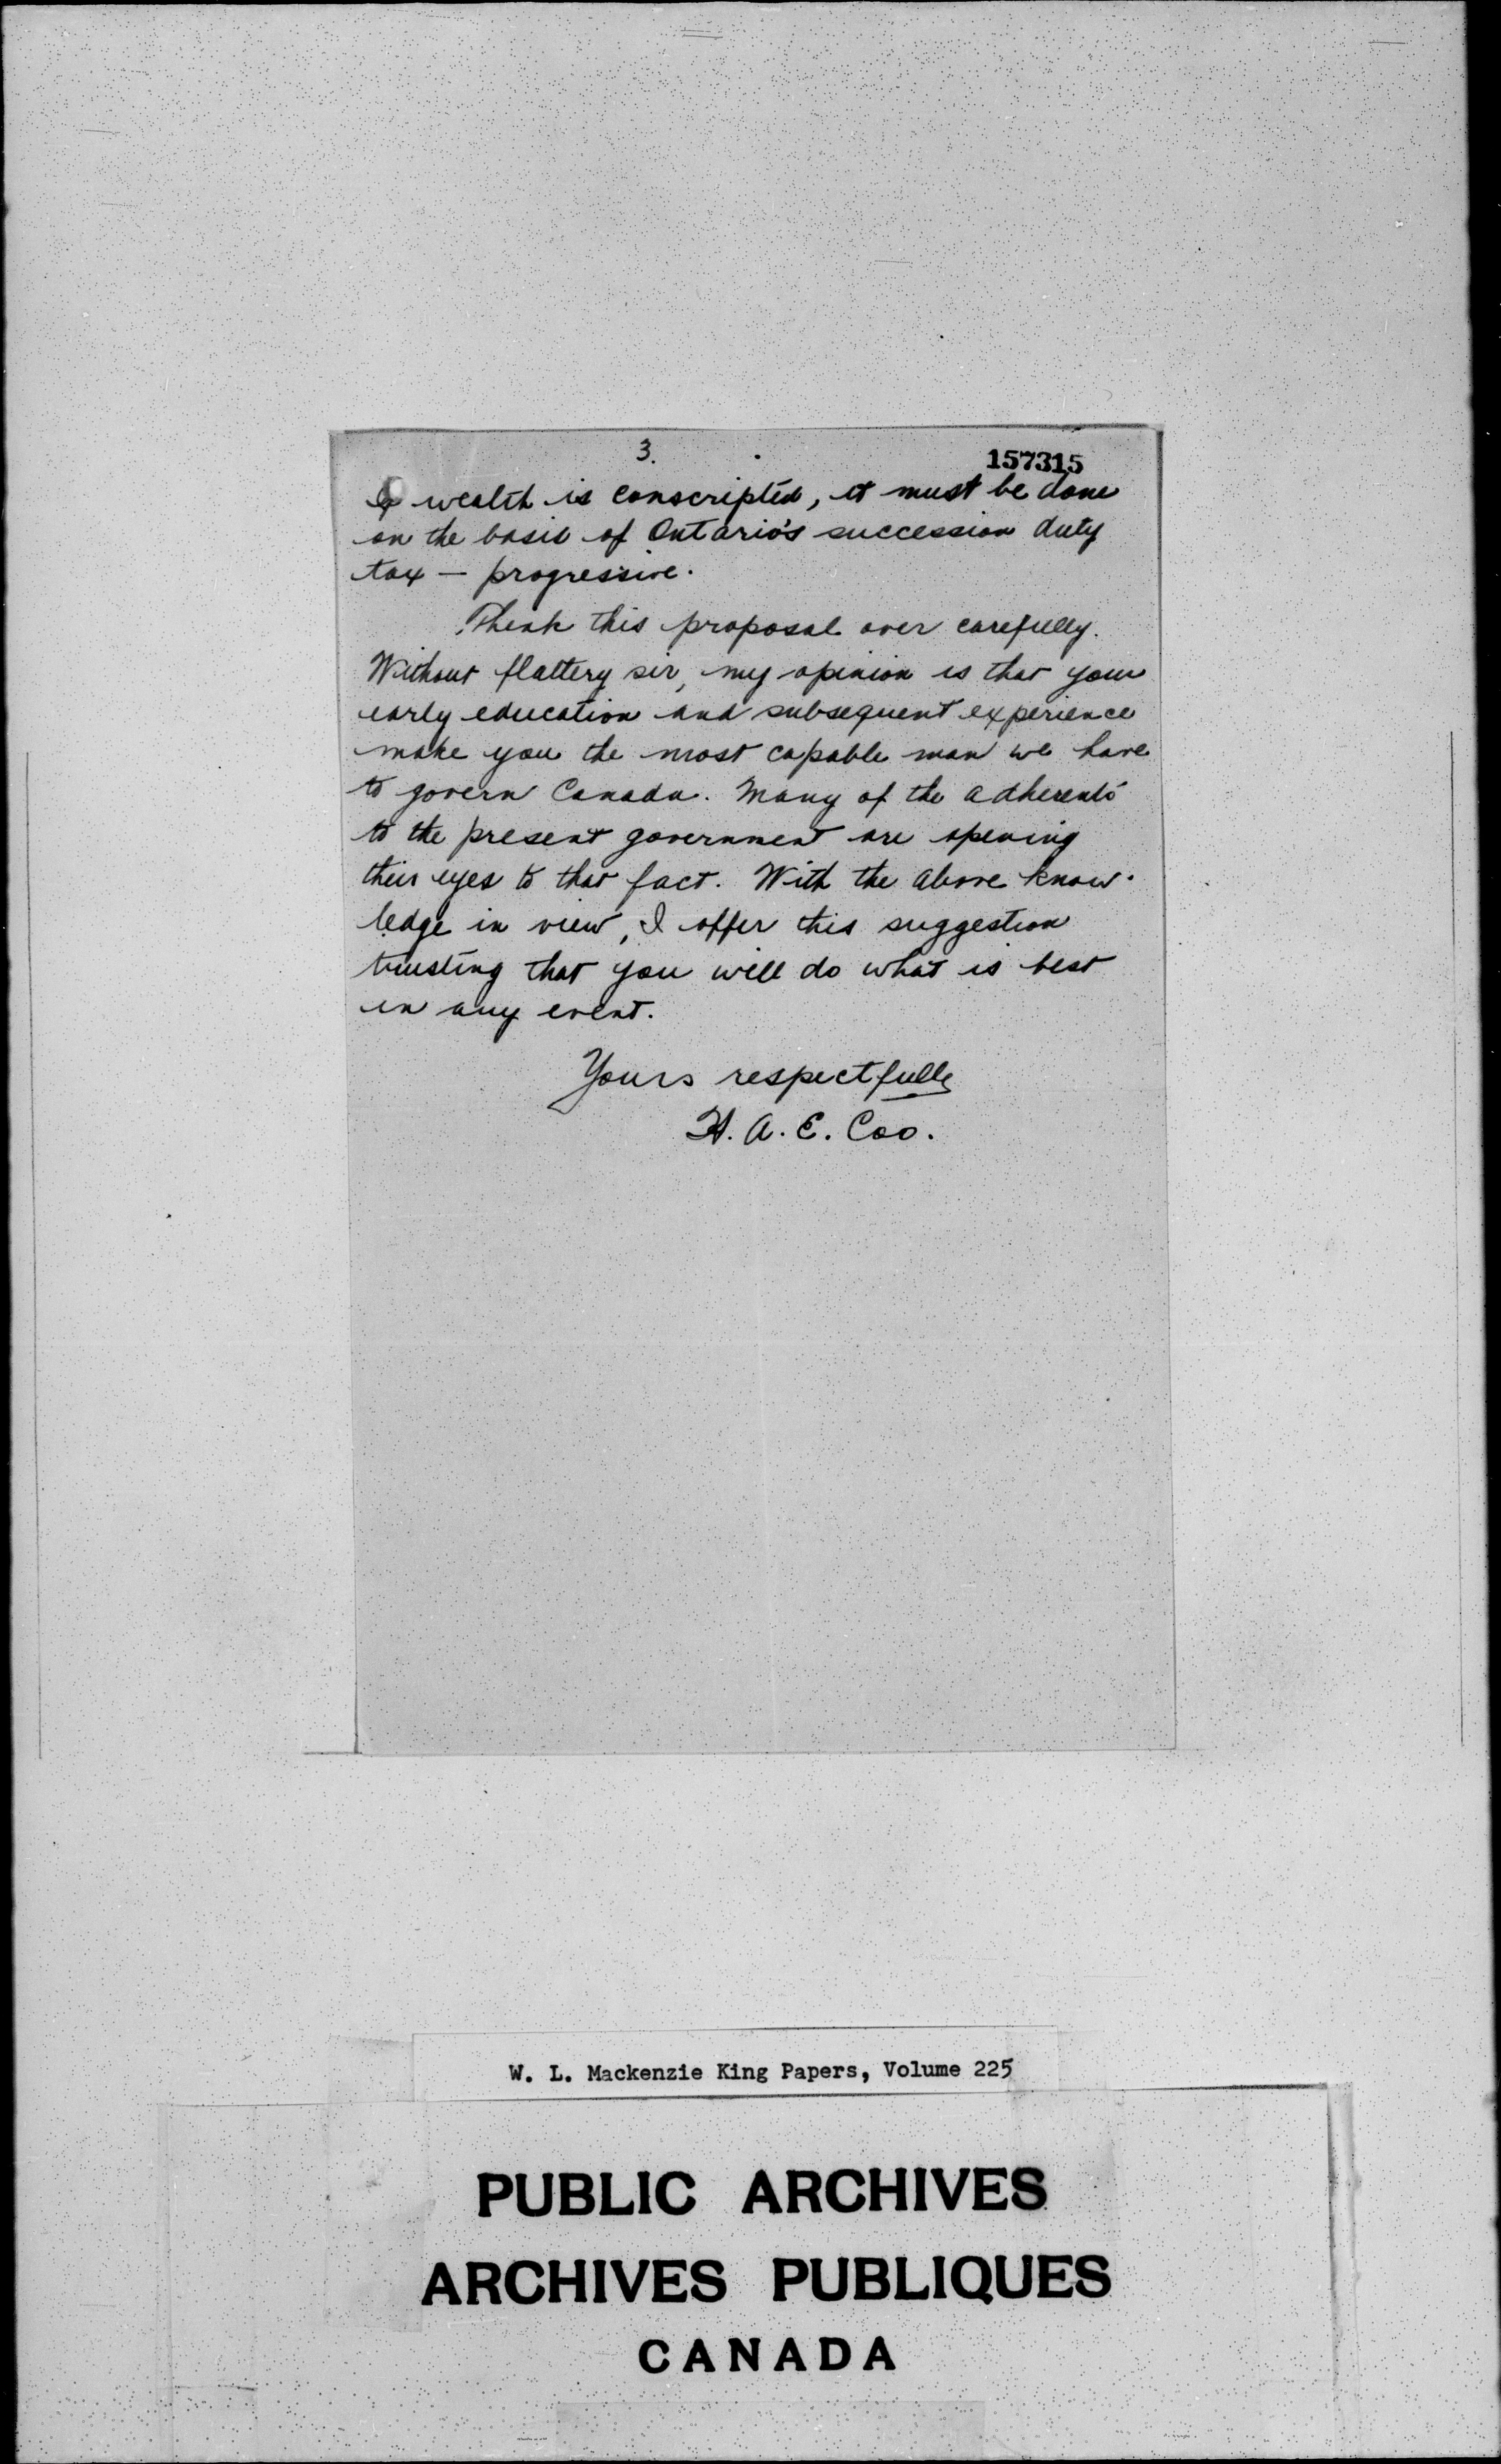 3.
157315
If wealth is conscripted, it must be done
on the basis of Ontario's succession duty
tax — progressive.
Think this proposal over carefully.
Without flattery sir, my opinion is that your
early education and subsequent experience
make you the most capable man we have
to govern Canada. Many of the adherents
to the present government are opening
their eyes to that fact. With the above know-
ledge in view, I offer this suggestion
trusting that you will do what is best
in any event.
Yours respectfully
H. A. E. Coo.
W. L. Mackenzie King Papers, Volume 225
PUBLIC ARCHIVES
ARCHIVES PUBLIQUES
CANADA